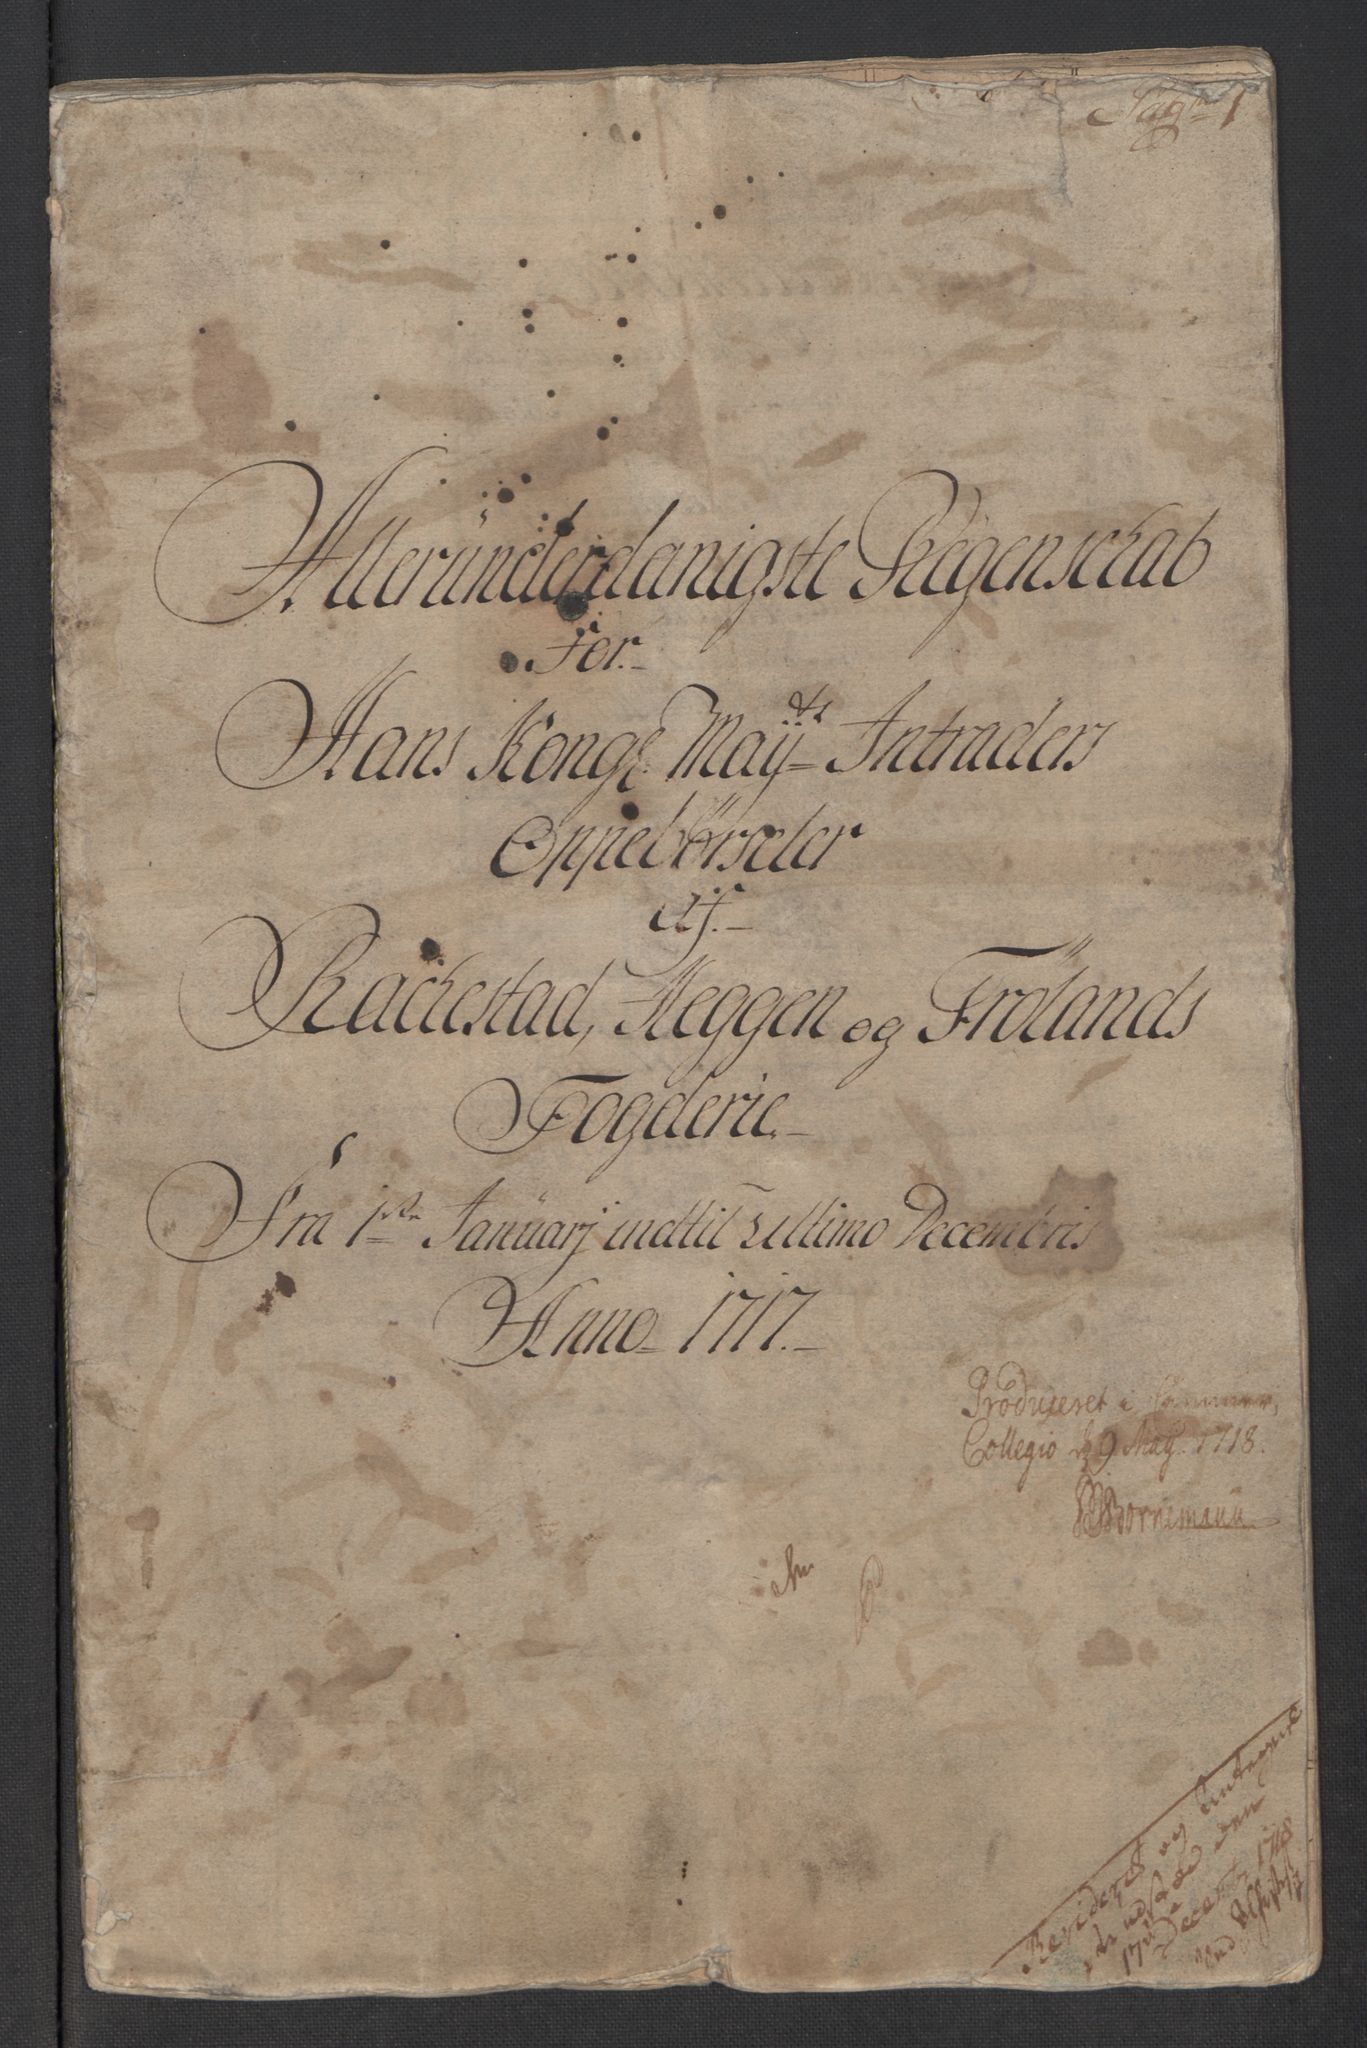 Pag: 1
Alleründerdanigste Regenschab
For.
Hans Kongl. Maÿts Intraders
Oppebörseler
Af.
Rackestad, Heggen og Frölands
Fogderie.
Fra 1ste Januarj indtil Ultimo Decembris
Anno 1717.
Produceret i Cammer,
Collegio d 9 Maÿ. 1718.
Bornemann
Revideret og
den
17de Decembr 1718